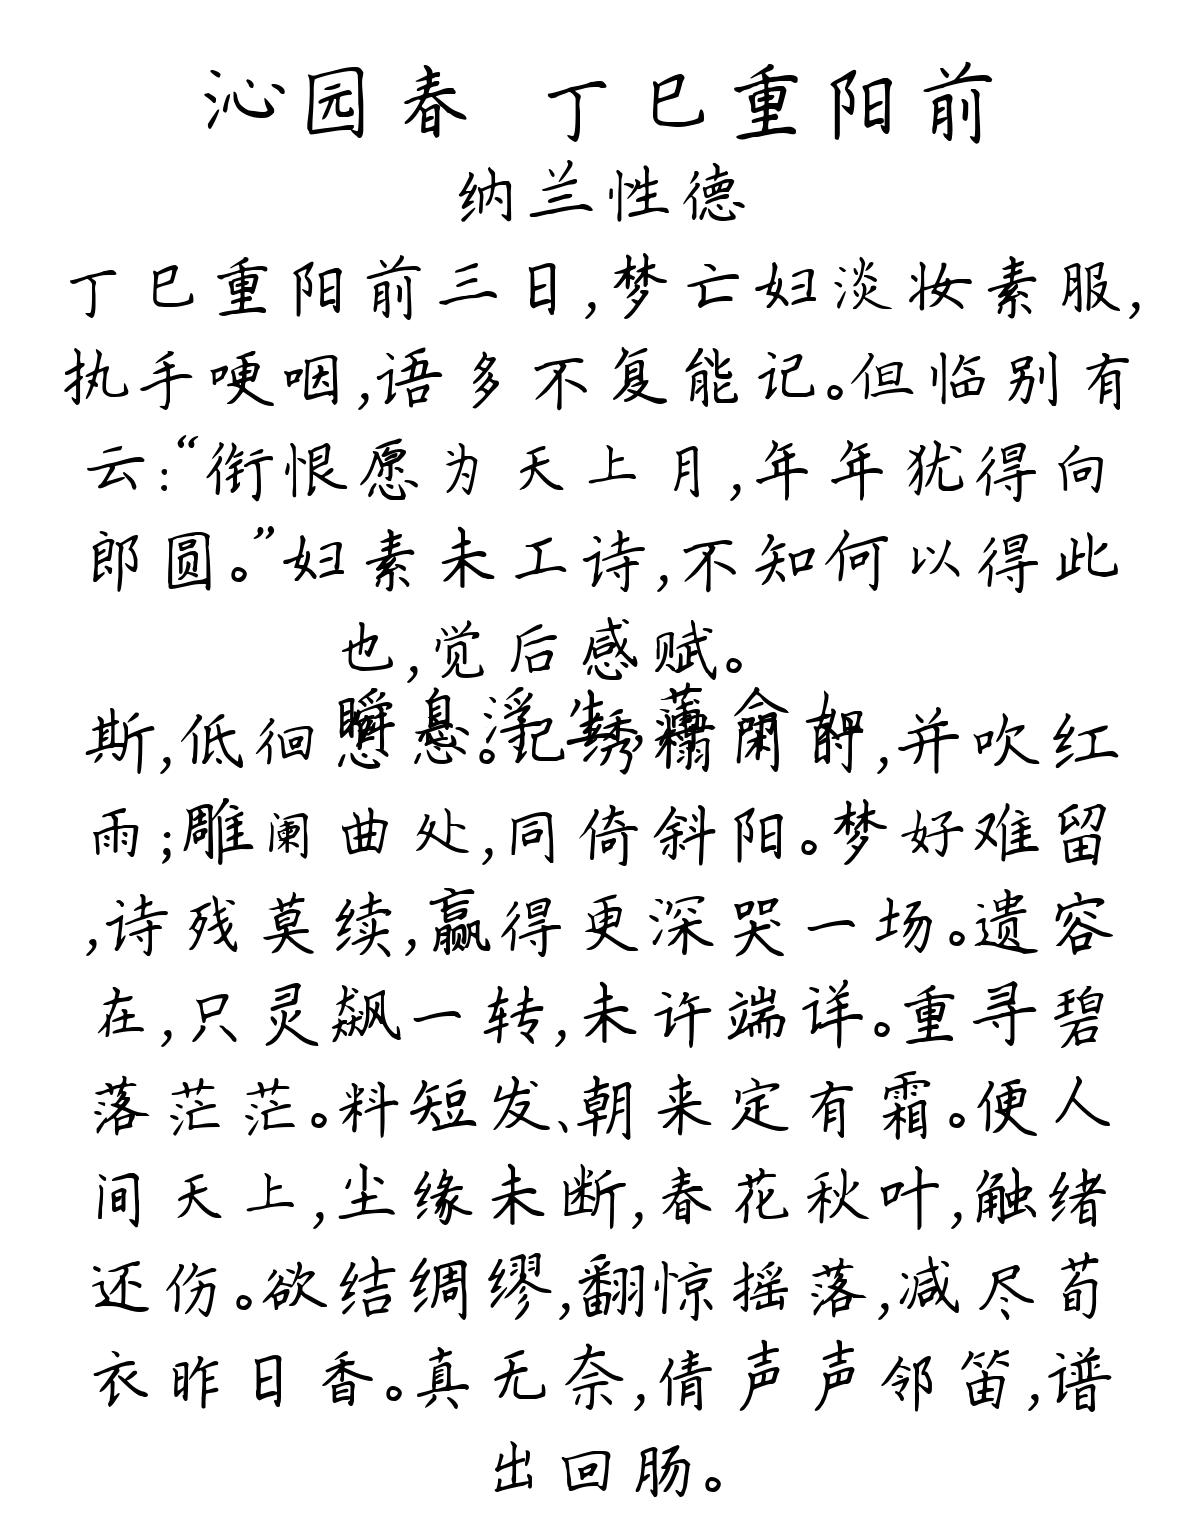 沁园春 丁巳重阳前
纳兰性德
丁巳重阳前三日,梦亡妇淡妆素服,
执手哽咽,语多不复能记。但临别有
云:“衔恨愿为天上月,年年犹得向
郎圆。”妇素未工诗,不知何以得此
也,觉后感赋。
瞬息浮生,薄命如
斯,低徊怎忘。记绣榻闲时,并吹红
雨;雕阑曲处,同倚斜阳。梦好难留
,诗残莫续,赢得更深哭一场。遗容
在,只灵飙一转,未许端详。重寻碧
落茫茫。料短发、朝来定有霜。便人
间天上,尘缘未断,春花秋叶,触绪
还伤。欲结绸缪,翻惊摇落,减尽荀
衣昨日香。真无奈,倩声声邻笛,谱
出回肠。